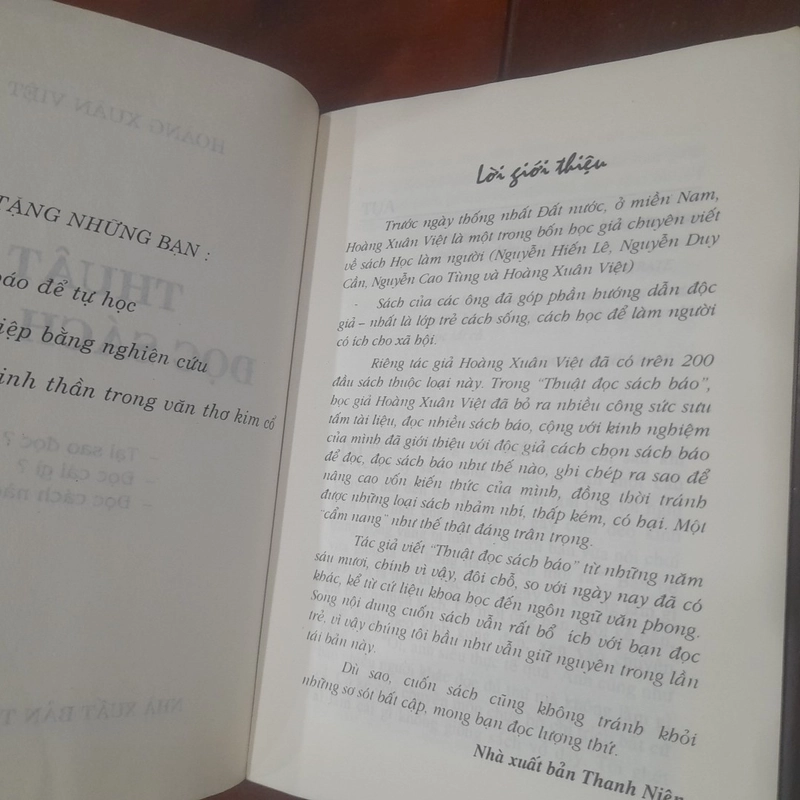 TẶNG NHỮNG BẠN :
báo để tự học
iệp bằng nghiên cứu
inh thần trong văn thơ kim cổ
Lời giới thiệu
Trước ngày thống nhất Đất nước, ở miền Nam,
Hoàng Xuân Việt là một trong bốn học giả chuyên viết
về sách Học làm người (Nguyễn Hiến Lê, Nguyễn Duy
Cần, Nguyễn Cao Tùng và Hoàng Xuân Việt)
- Sách của các ông đã góp phần hướng dẫn độc
giả – nhất là lớp trẻ cách sống, cách học để làm người
có ích cho xã hội.
Riêng tác giả Hoàng Xuân Việt đã có trên 200
đầu sách thuộc loại này. Trong “Thuật đọc sách báo”,
học giả Hoàng Xuân Việt đã bỏ ra nhiều công sức sưu
tầm tài liệu, đọc nhiều sách báo, cộng với kinh nghiệm
của mình đã giới thiệu với độc giả cách chọn sách báo
để đọc, đọc sách báo như thế nào, ghi chép ra sao để
nâng cao vốn kiến thức của mình, đồng thời tránh
được những loại sách nhảm nhí, thấp kém, có hại. Một
“cẩm nang” như thế thật đáng trân trọng.
Tác giả viết “Thuật đọc sách báo” từ những năm
sáu mươi, chính vì vậy, đôi chỗ, so với ngày nay đã có
khác, kể từ cứ liệu khoa học đến ngôn ngữ văn phong.
Song nội dung cuốn sách vẫn rất bổ ích với bạn đọc
trẻ, vì vậy chúng tôi hầu như vẫn giữ nguyên trong lần
tái bản này.
Dù sao, cuốn sách cũng không tránh khỏi
những sơ sót bất cập, mong bạn đọc lượng thứ.
Nhà xuất bản Thanh Niên